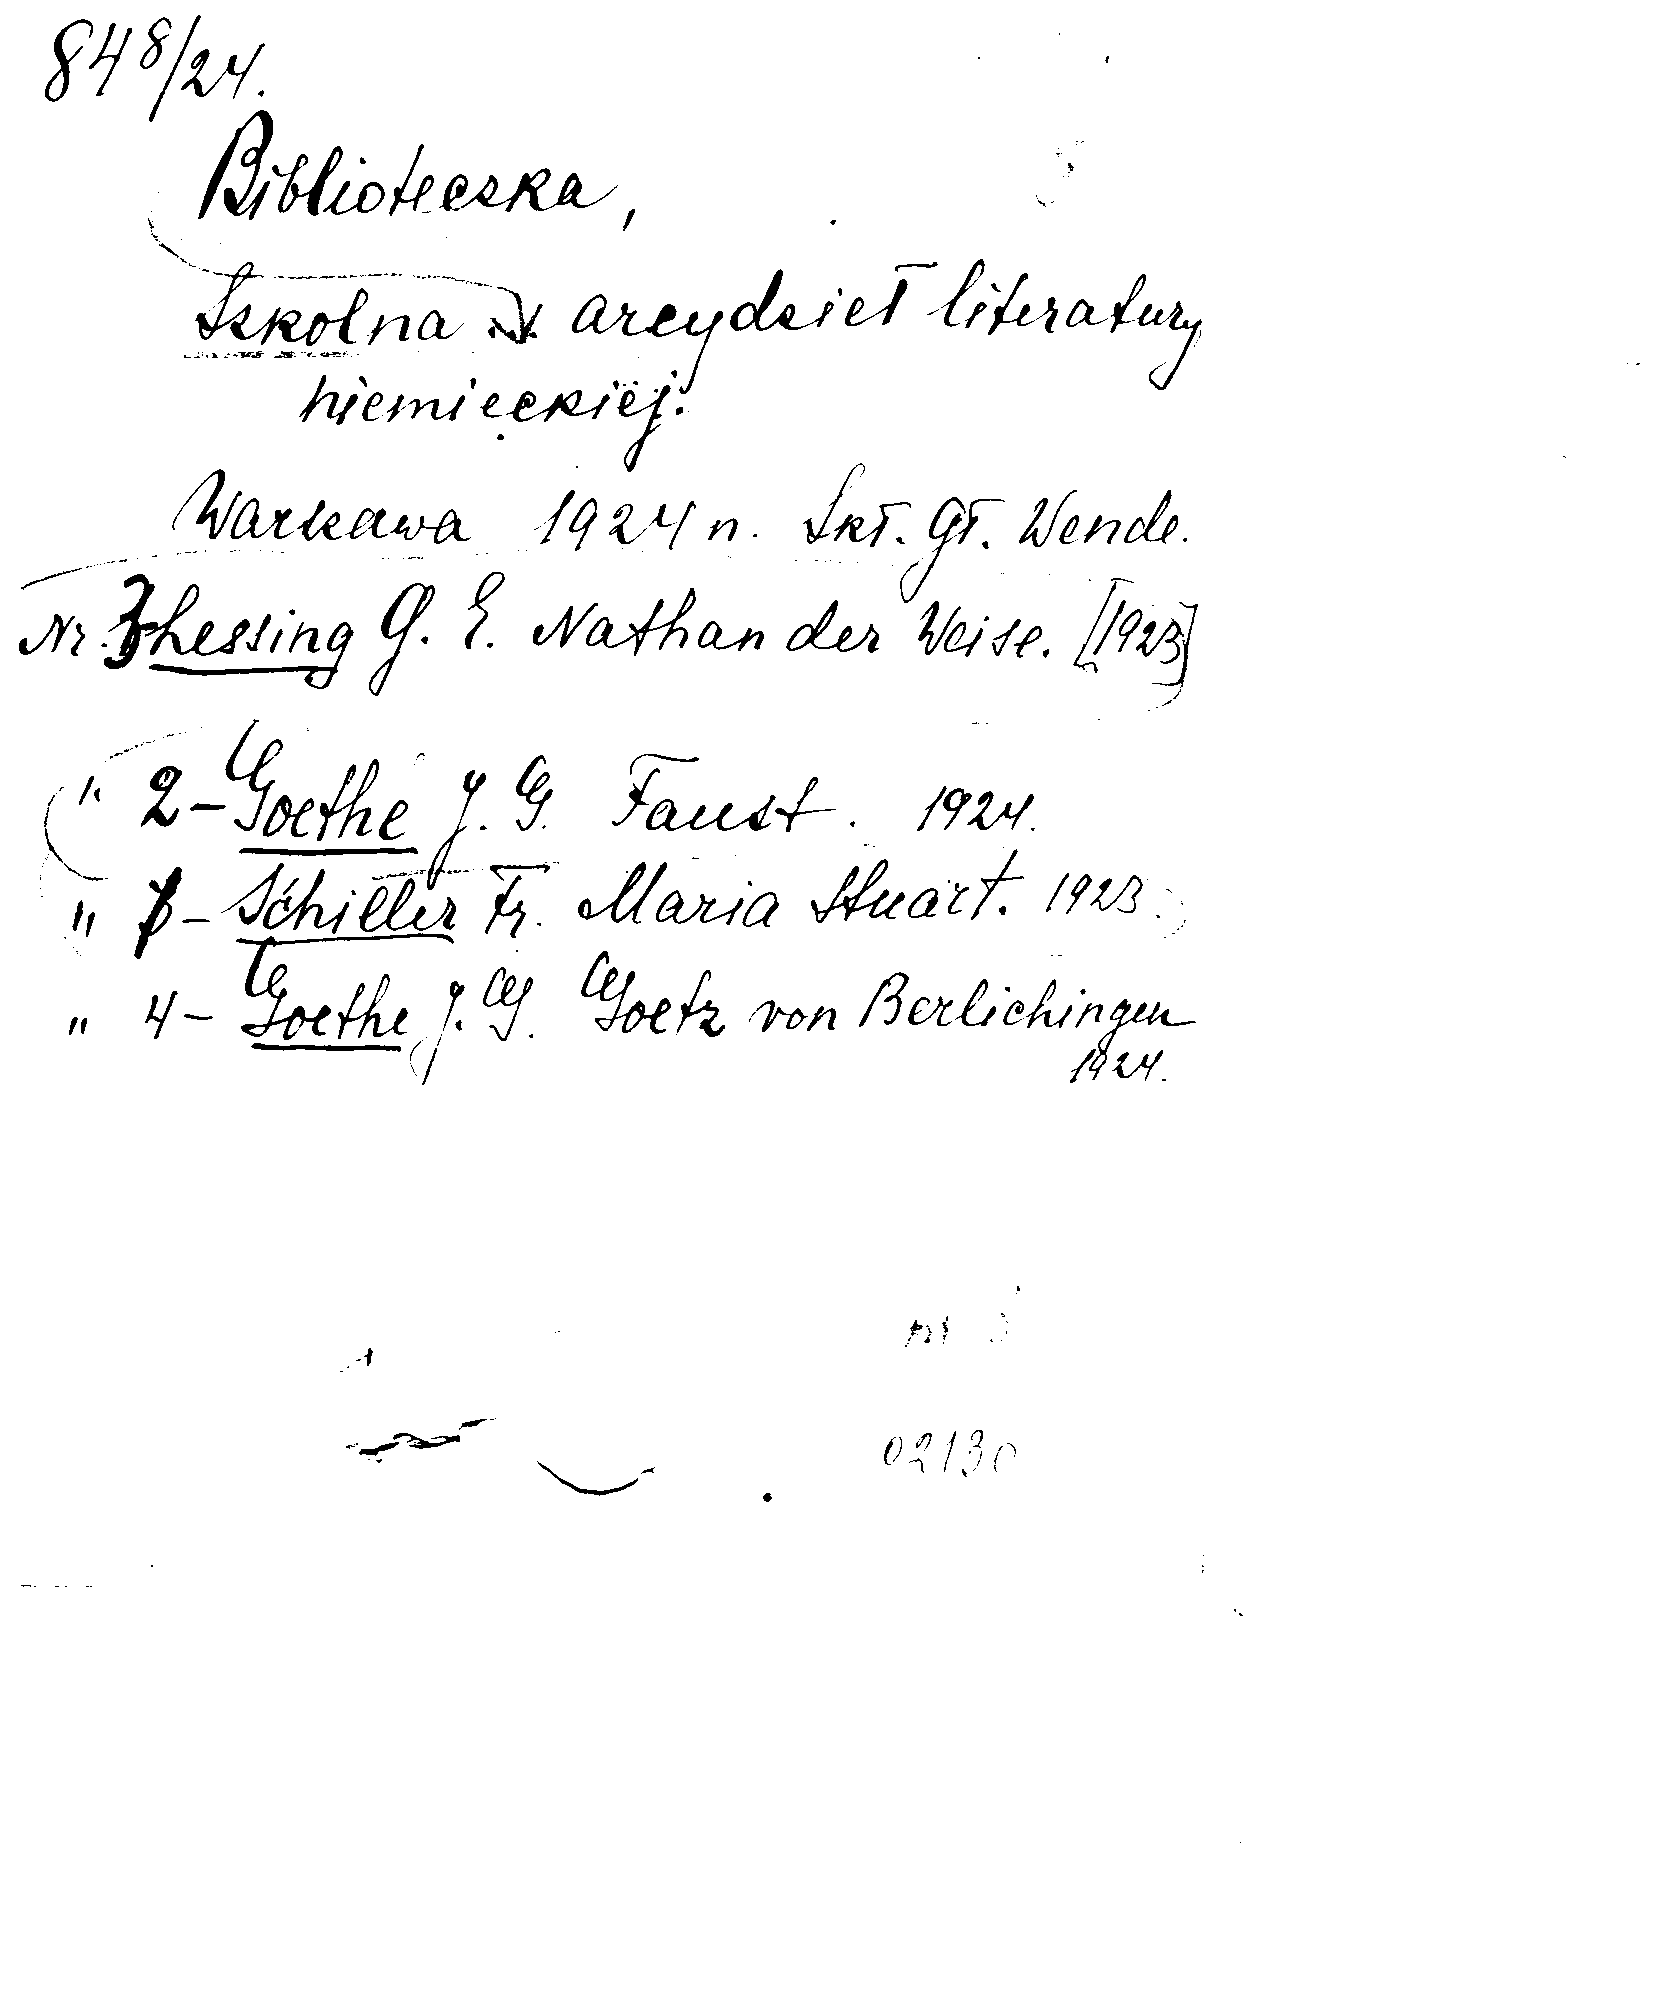 848/24.
Biblioteczka,
Szkolna arcydzieł literatury
niemieckiej.
Warszawa 1924 n. Skł. Gł. Wende.
Nr. 3 Lessing G. E. Nathan der Weise. [1923]
" 2 - Goethe J. G. Faust. 1924.
" - Schiller Fr. Maria Stuart. 1923.
" 4 - Goethe J. G. Goetz von Berlichingen
1924.
02130